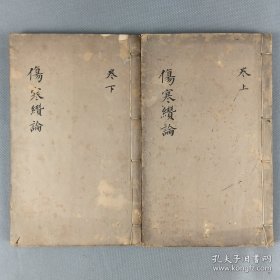 卷上
傷寒纘論
卷下
傷寒纘論
孔夫子旧书网